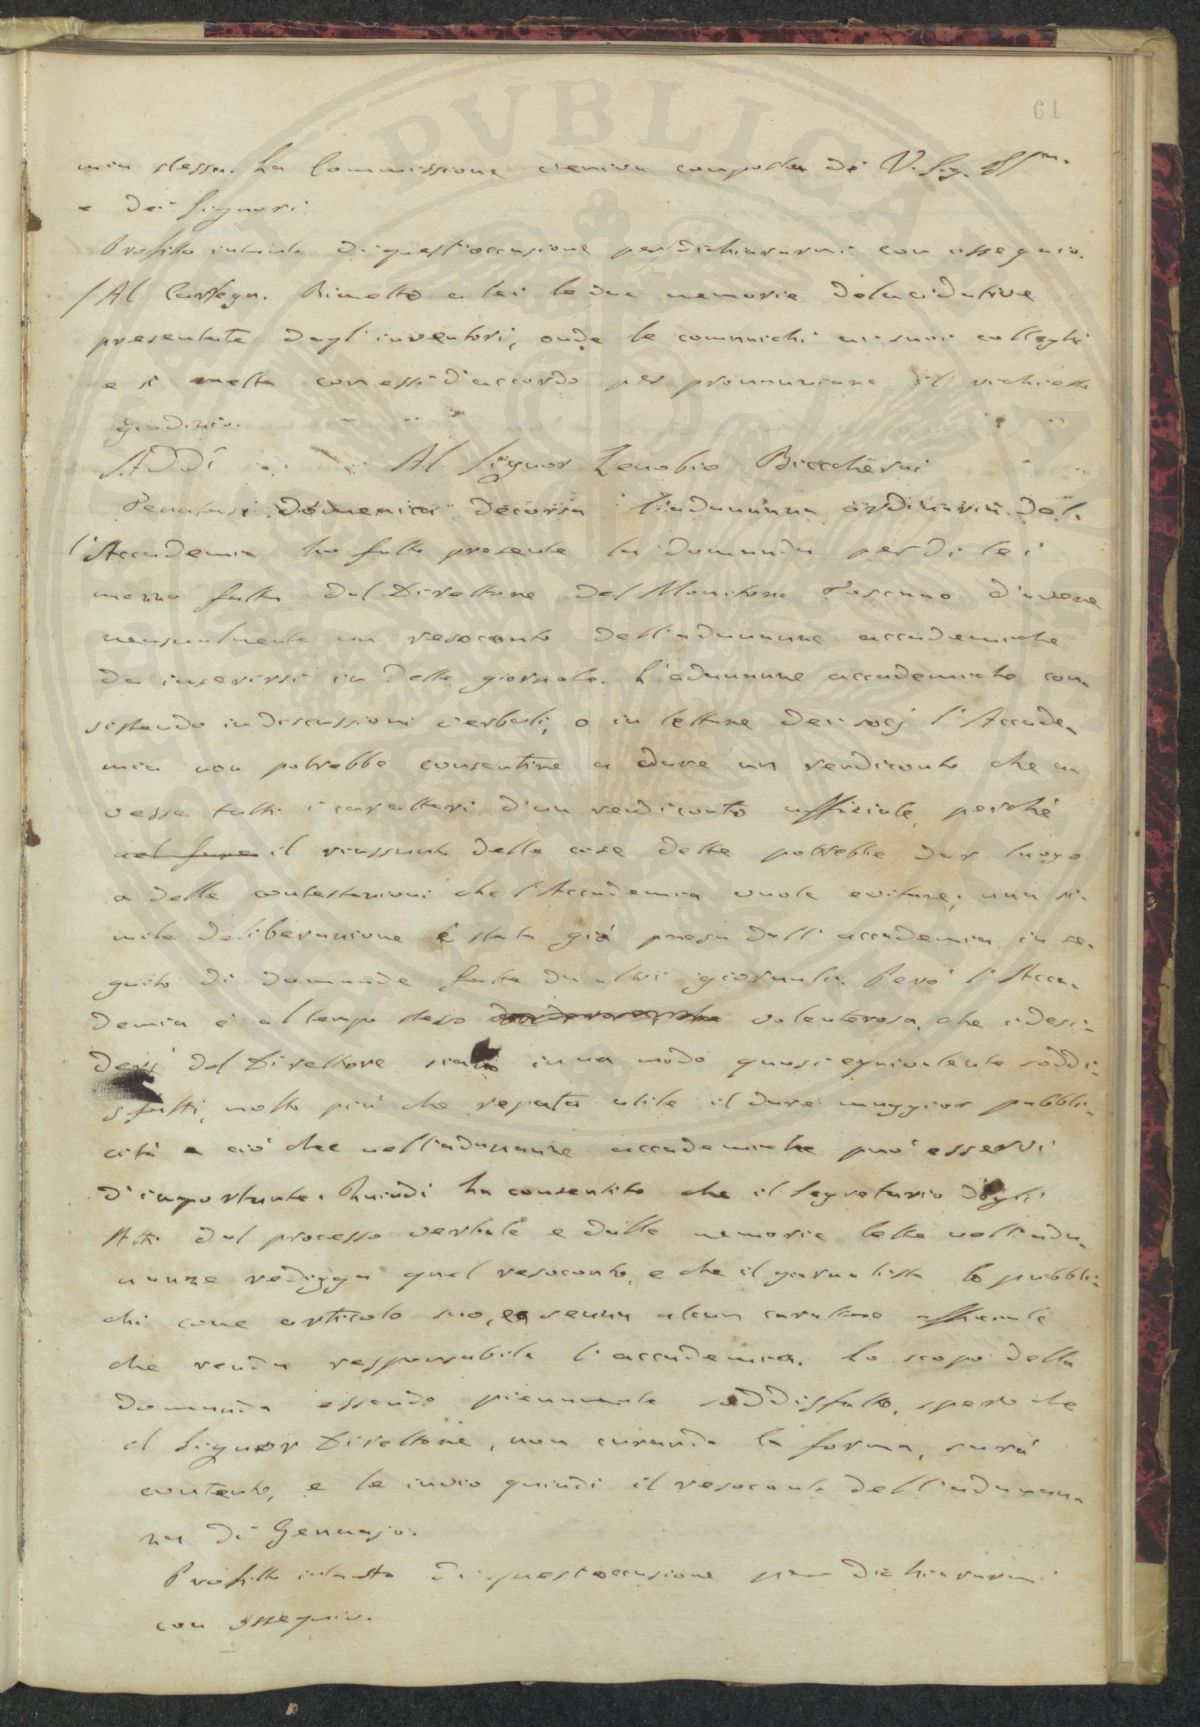 61
mia stessa. La Commissione veniva composta di V. Sig. Ill.ma
e dei Signori
Profitto intanto di quest'occasione per dichiararmi con ossequio.
/Al Corridi. Rimetto a lei le due memorie delucidative
presentate dagl'inventori, onde le comunichi ai suoi colleghi
e si metta con essi d'accordo per pronunziare il richiesto
giudizio.
Addì Al Signor Zenobio Biccherai
domenica decorsa l'adunanza ordinaria del-
l'Accademia ho fatto presente la domanda per di lei
mezzo fatta dal Direttore del Monitore Toscano d'avere
mensualmente un resoconto dell'adunanze accademiche
da inserirsi in detto giornale. L'adunanze accademiche con-
sistendo in discussioni verbali, o in letture dei socj l'Accade-
mia non potrebbe consentire a dare un rendiconto che a-
vesse tutti i caratteri d'un rendiconto uffiziale, perchè
nel fare il riassunto delle cose dette potrebbe dar luogo
a delle contestazioni che l'Accademia vuole evitare; una si-
mile deliberazione è stata già presa dall'accademia in se-
guito di domande fatte da altri giornali. Però l'Acca-
demia è al tempo stesso volenterosa, che i desi-
derj del Direttore siano in un modo quasi equivalente soddi-
sfatti, molto più che reputa utile il dare maggior pubbli-
cità a ciò che nell'adunanze accademiche può esservi
d'importante. Quindi ha consentito che il Segretario degli
Atti dal processo verbale e dalle memorie lette nell'adu-
nanze rediga quel resoconto, e che il giornalista lo pubbli-
chi come articolo suo, e senza alcun carattere offiziale
che renda responsabile l'accademia. Lo scopo della
domanda essendo pienamente soddisfatto, spero che
il Signor Direttore, non curando la forma, sarà
contento, e le invio quindi il resoconto dell'adunan-
za di Gennajo.
Profitto intanto di quest'occasione per dichiararmi
con ossequio.